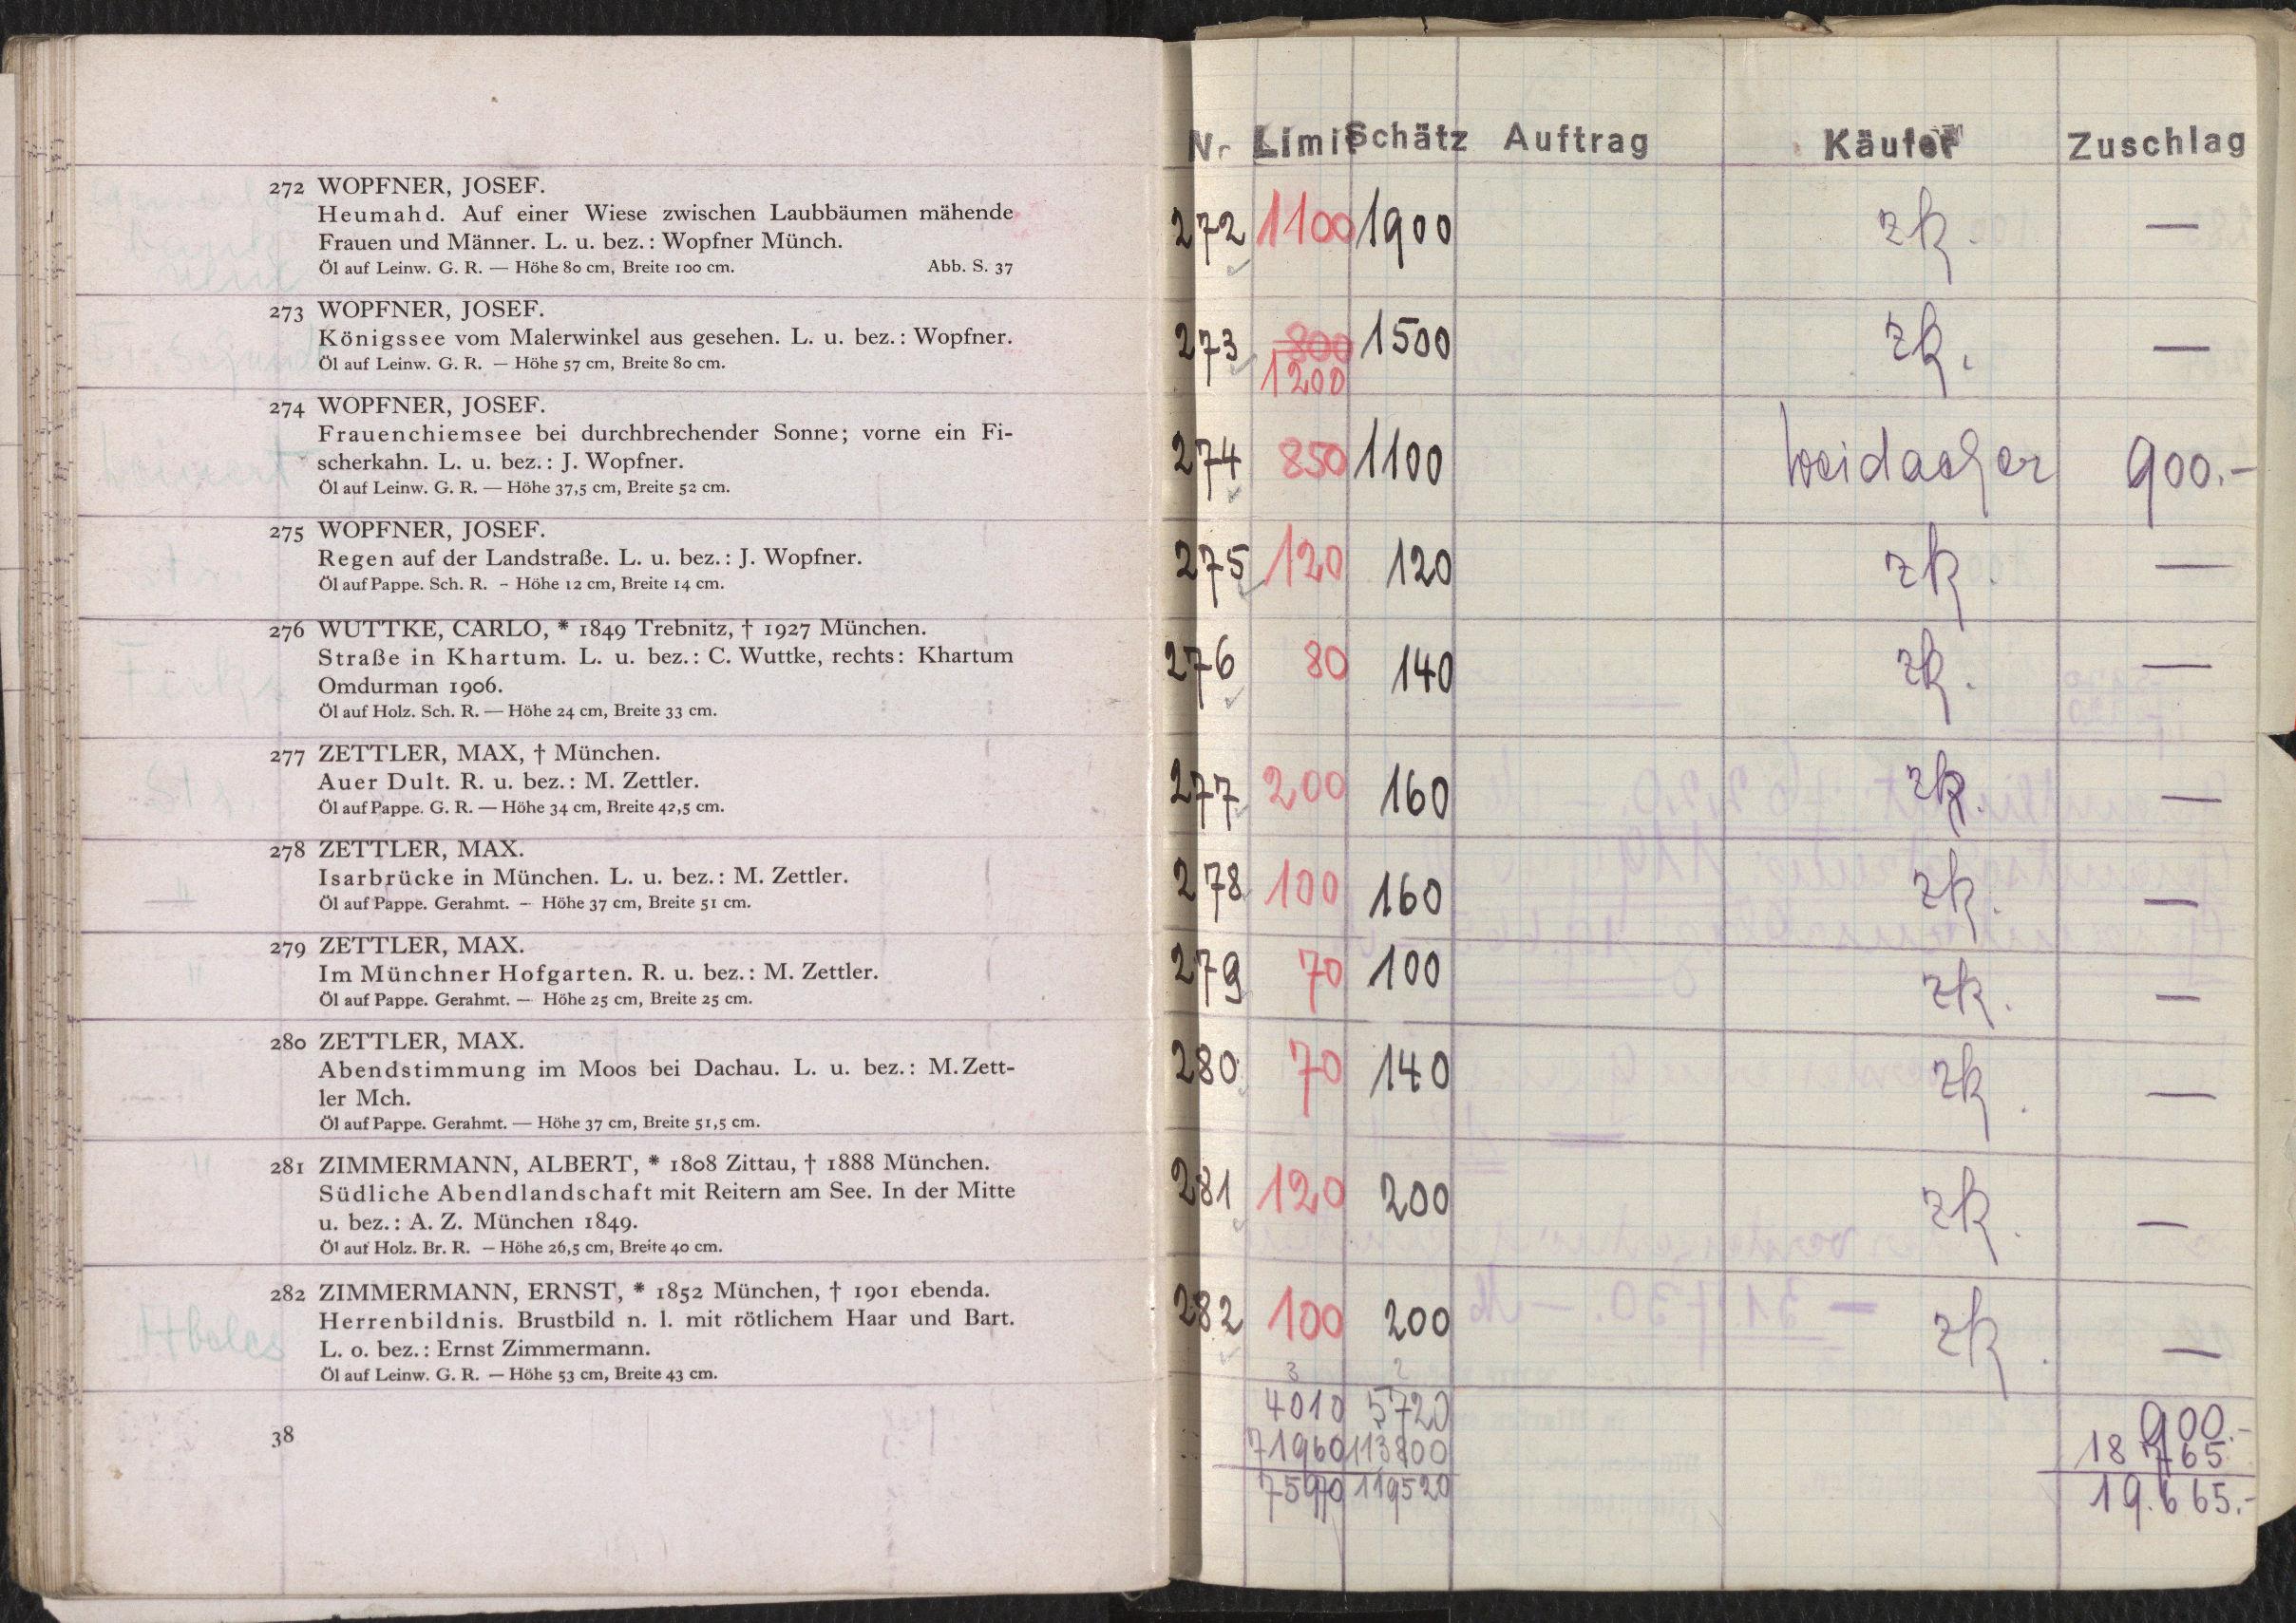 272 WOPFNER, JOSEF.
Heumahd. Auf einer Wiese zwischen Laubbäumen mähende
Frauen und Männer. L. u. bez.: Wopfner Münch.
Öl auf Leinw. G. R. — Höhe 80 cm, Breite 100 cm. Abb. S. 37
273 WOPFNER, JOSEF.
Königssee vom Malerwinkel aus gesehen. L. u. bez.: Wopfner.
Öl auf Leinw. G. R. — Höhe 57 cm, Breite 80 cm.
274 WOPFNER, JOSEF.
Frauenchiemsee bei durchbrechender Sonne; vorne ein Fi-
scherkahn. L. u. bez.: J. Wopfner.
Öl auf Leinw. G. R. — Höhe 37,5 cm, Breite 52 cm.
275 WOPFNER, JOSEF.
Regen auf der Landstraße. L. u. bez.: J. Wopfner.
Öl auf Pappe. Sch. R. – Höhe 12 cm, Breite 14 cm.
276 WUTTKE, CARLO, * 1849 Trebnitz, † 1927 München.
Straße in Khartum. L. u. bez.: C. Wuttke, rechts: Khartum
Omdurman 1906.
Öl auf Holz. Sch. R. — Höhe 24 cm, Breite 33 cm.
277 ZETTLER, MAX, † München.
Auer Dult. R. u. bez.: M. Zettler.
Öl auf Pappe. G. R. — Höhe 34 cm, Breite 42,5 cm.
278 ZETTLER, MAX.
Isarbrücke in München. L. u. bez.: M. Zettler.
Öl auf Pappe. Gerahmt. – Höhe 37 cm, Breite 51 cm.
279 ZETTLER, MAX.
Im Münchner Hofgarten. R. u. bez.: M. Zettler.
Öl auf Pappe. Gerahmt. — Höhe 25 cm, Breite 25 cm.
280 ZETTLER, MAX.
Abendstimmung im Moos bei Dachau. L. u. bez.: M. Zett-
ler Mch.
Öl auf Pappe. Gerahmt. — Höhe 37 cm, Breite 51,5 cm.
281 ZIMMERMANN, ALBERT, * 1808 Zittau, † 1888 München.
Südliche Abendlandschaft mit Reitern am See. In der Mitte
u. bez.: A. Z. München 1849.
Öl auf Holz. Br. R. – Höhe 26,5 cm, Breite 40 cm.
282 ZIMMERMANN, ERNST, * 1852 München, † 1901 ebenda.
Herrenbildnis. Brustbild n. l. mit rötlichem Haar und Bart.
L. o. bez.: Ernst Zimmermann.
Öl auf Leinw. G. R. — Höhe 53 cm, Breite 43 cm.
38
Nr Limit Schätz Auftrag Käufer Zuschlag
272 1100 1900 zk. —
273 800 1500 zk. —
1200
274 850 1100 Weidacher 900.-
275 120 120 zk. —
276 80 140 zk. —
277 200 160 zk. —
278 100 160 zk. —
279 70 100 zk. —
280 70 140 zk. —
281 120 200 zk. —
282 100 200 zk. —
3 2
4010 5720 900.-
71960 113800 18 765
75970 119520 19.665.-